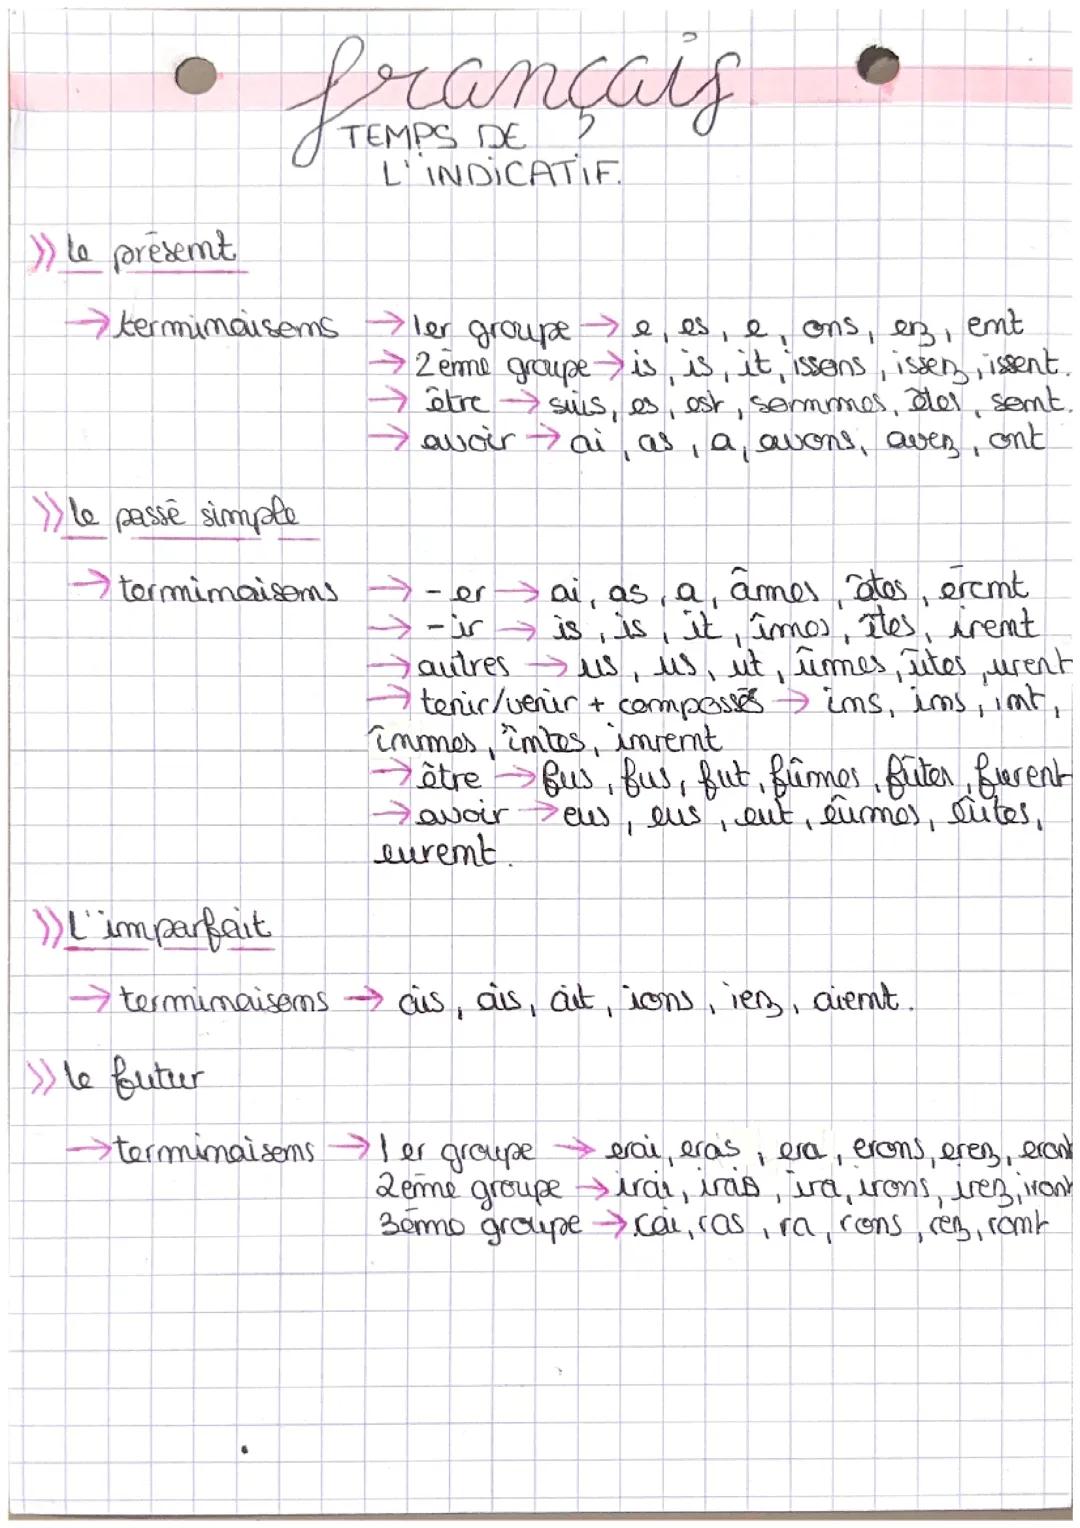 français
TEMPS DE
L'INDICATIF.
» le présent
→ terminaisons → 1er groupe → e, es, e, ons, ez, ent
→ 2ème groupe → is, is, it, issons, issez, issent.
→ être → suis, es, est, sommes, êtes, sont.
→ avoir → ai, as, a, avons, avez, ont
» le passé simple
→ terminaisons → -er → ai, as, a, âmes, âtes, èrent
→ -ir → is, is, it, îmes, îtes, irent
→ autres → us, us, ut, ûmes, ûtes, urent
→ tenir/venir + composés → ins, ins, int,
înmes, întes, inrent
→ être → fus, fus, fut, fûmes, fûtes, furent
→ avoir → eus, eus, eut, eûmes, eûtes,
eurent.
» L'imparfait
→ terminaisons → ais, ais, ait, ions, iez, aient.
» le futur
→ terminaisons → 1er groupe → erai, eras, era, erons, erez, eront
2ème groupe → irai, iras, ira, irons, irez, iront
3ème groupe → rai, ras, ra, rons, rez, ront